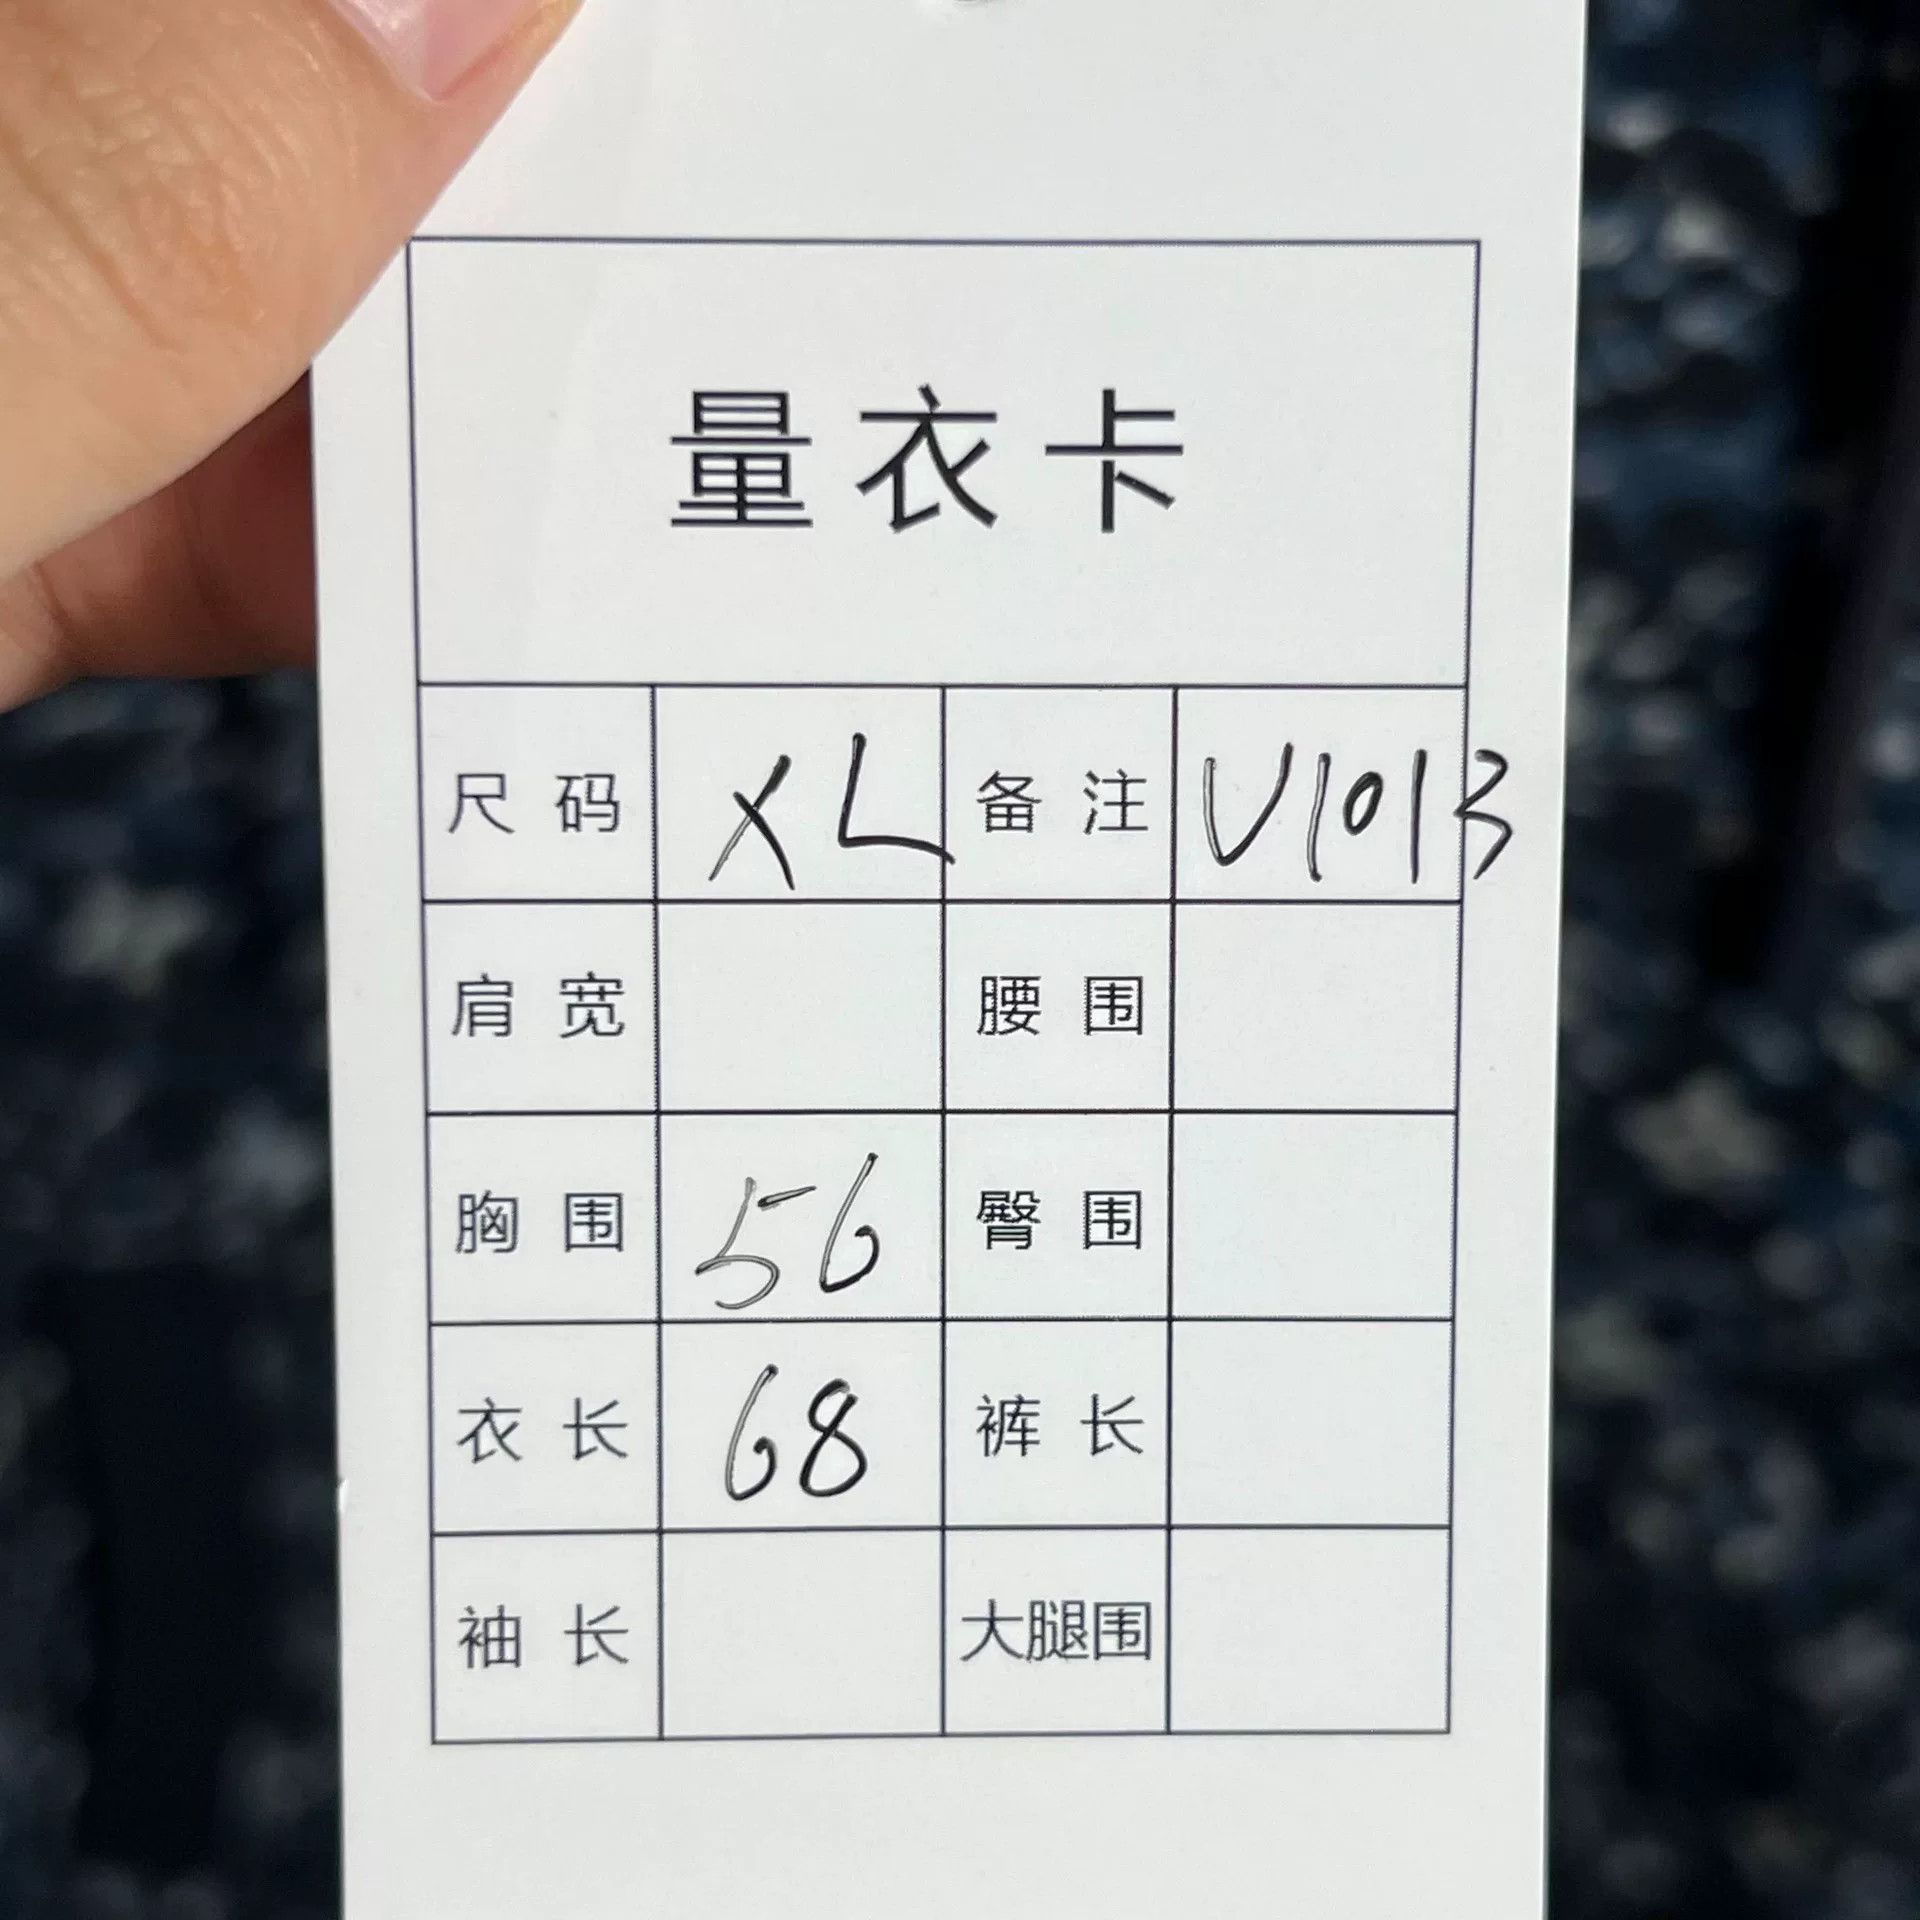 量衣卡
尺码 XL 备注 V1013
肩宽 腰围
胸围 56 臀围
衣长 68 裤长
袖长 大腿围